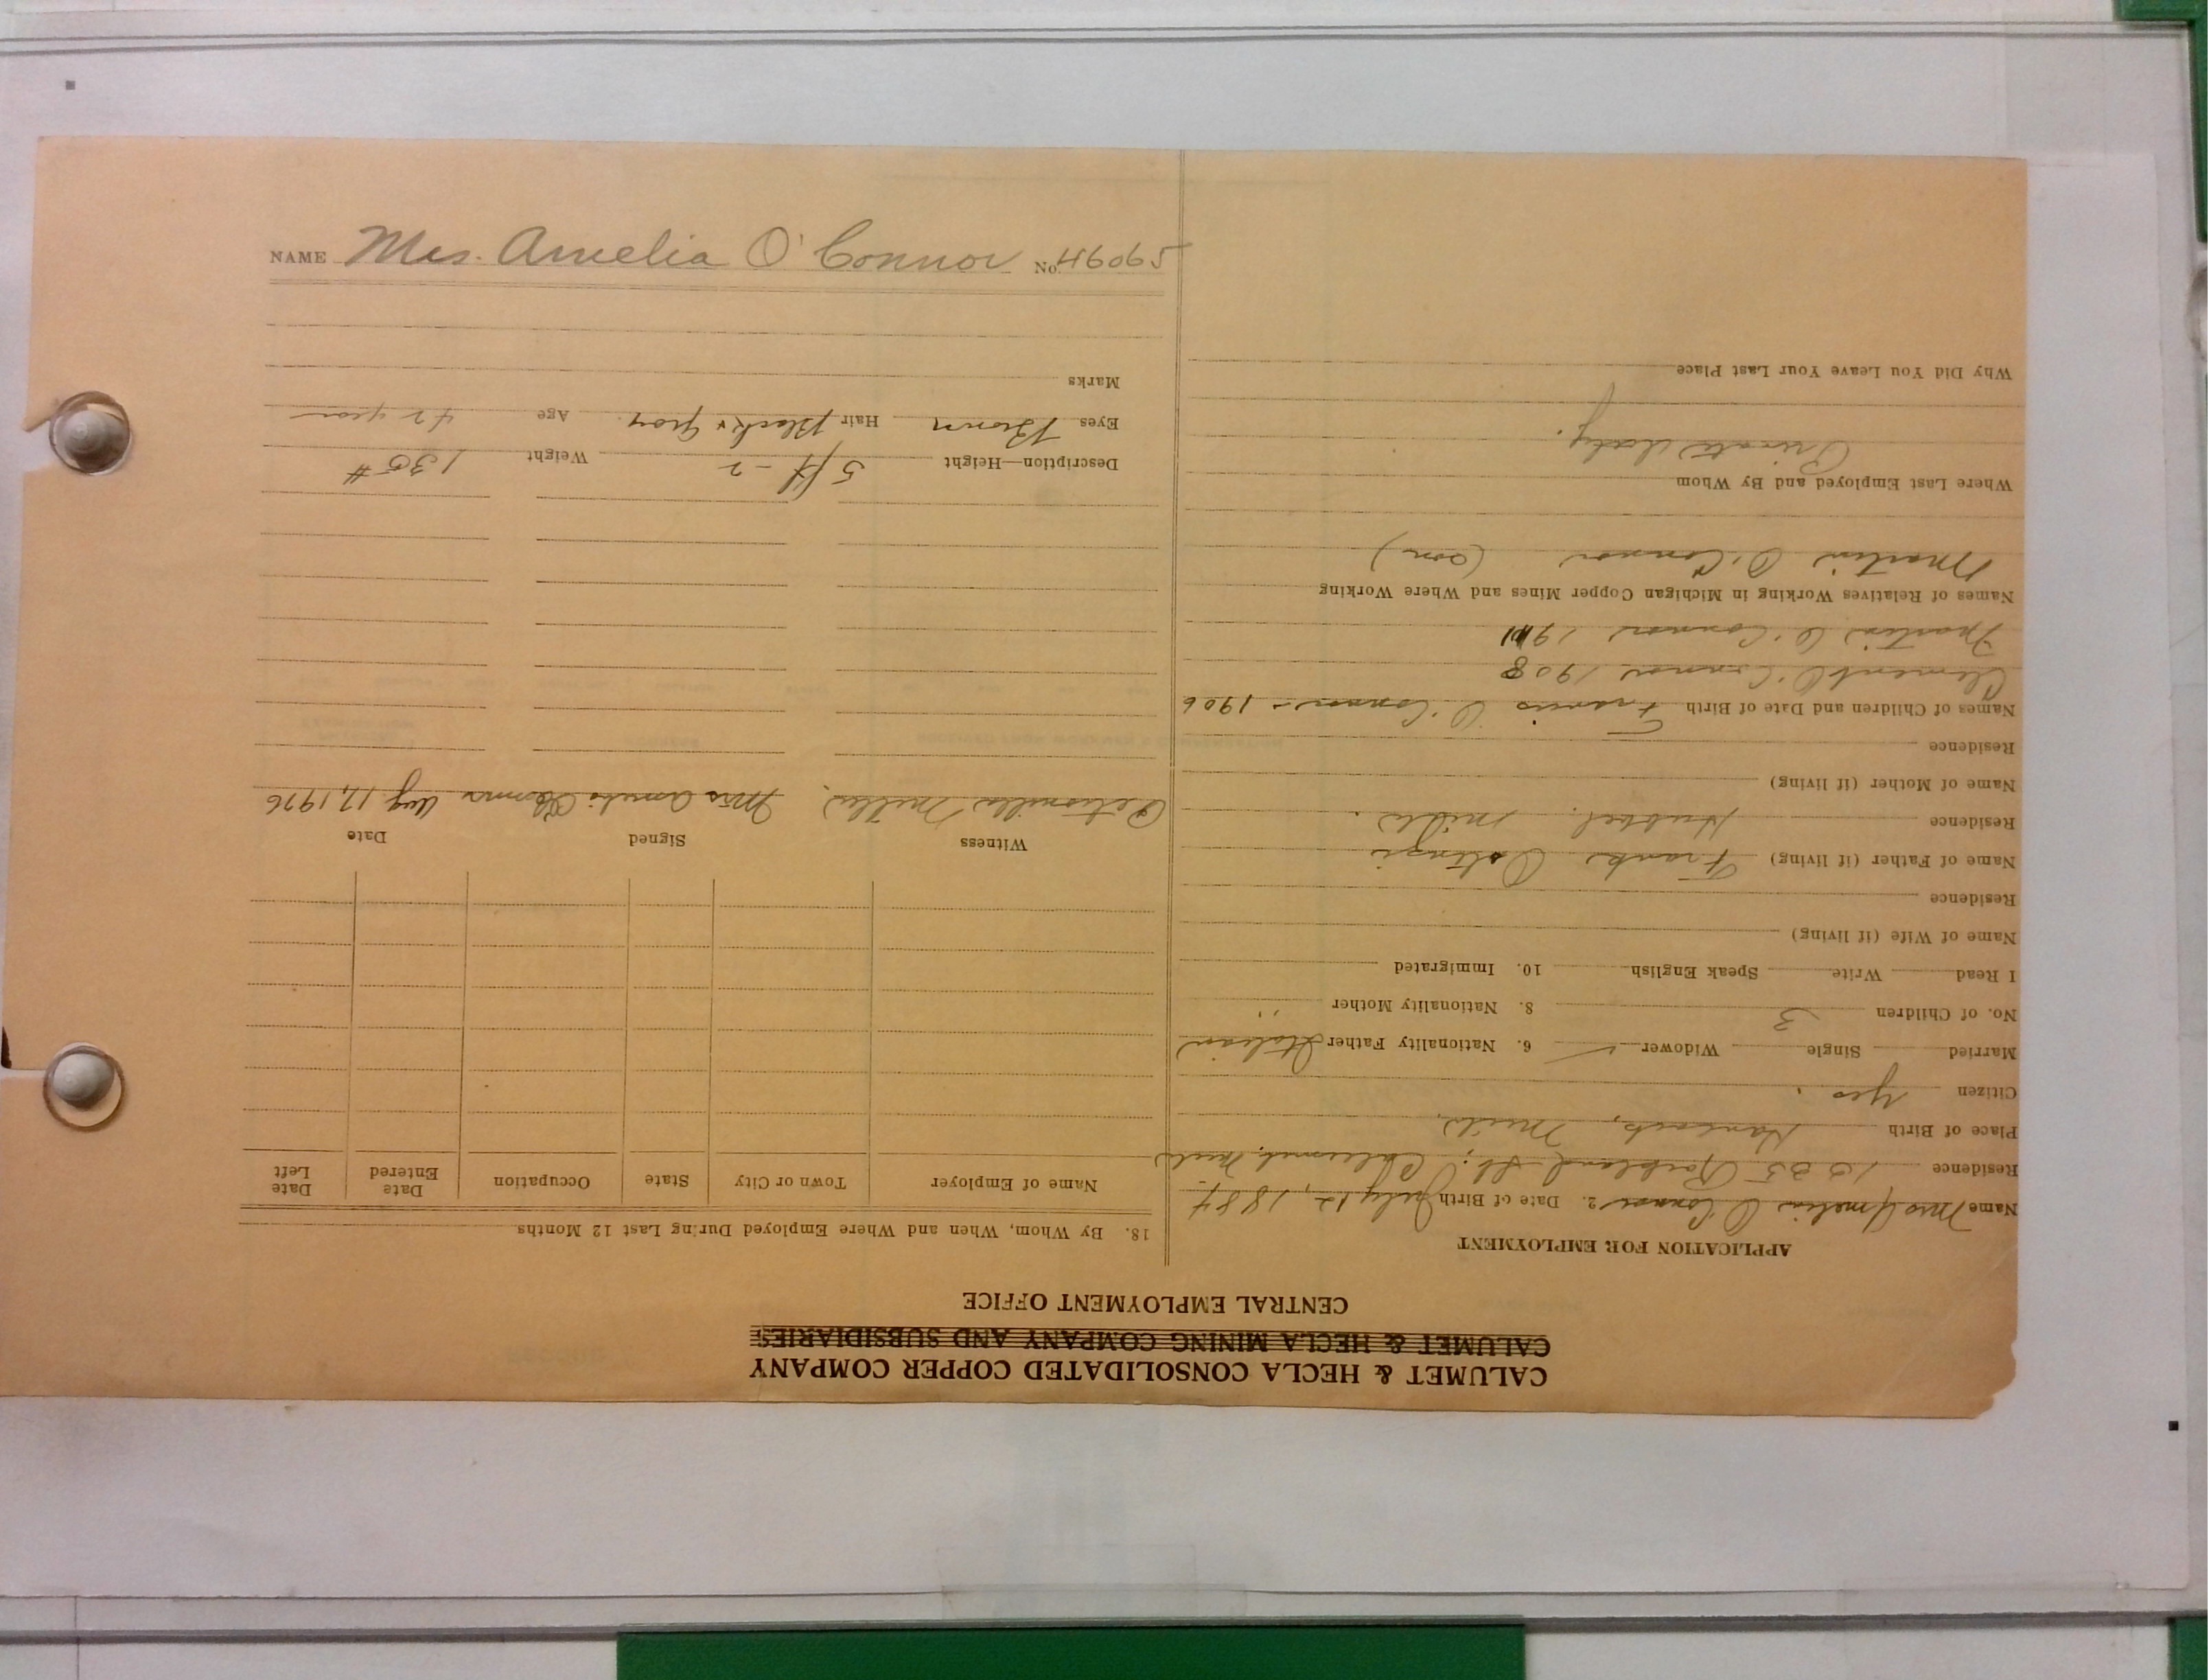 CALUMET & HECLA CONSOLIDATED COPPER COMPANY
CALUMET & HECLA MINING COMPANY AND SUBSIDIARIES
CENTRAL EMPLOYMENT OFFICE
APPLICATION FOR EMPLOYMENT
Name Mrs Amelia O'Connor 2. Date of Birth July 12, 1884
Residence Rockland St., Calumet, Mich
Place of Birth Hancock, Mich.
Citizen Yes.
Married Single Widower ✓ 6. Nationality Father Italian
No. of Children 3 8. Nationality Mother "
I Read Write Speak English 10. Immigrated
Name of Wife (if living)
Residence
Name of Father (if living) Frank
Residence Hubbel, Mich.
Name of Mother (if living)
Residence
Names of Children and Date of Birth Francis O'Connor - 1906
Clement O'Connor 1908
Martin O'Connor 1911
Names of Relatives Working in Michigan Copper Mines and Where Working
Martin O'Connor (son)
Where Last Employed and By Whom
Private
Why Did You Leave Your Last Place
18. By Whom, When and Where Employed During Last 12 Months
Name of Employer Town or City State Occupation Date Entered Date Left
Witness Signed Date
Miller Mrs Amelia O'Connor Aug 17, 1926
Description—Height 5 ft - 2 Weight 135 #
Eyes Brown Hair Black & Gray. Age 42 year
Marks
NAME Mrs. Amelia O'Connor No. 46065